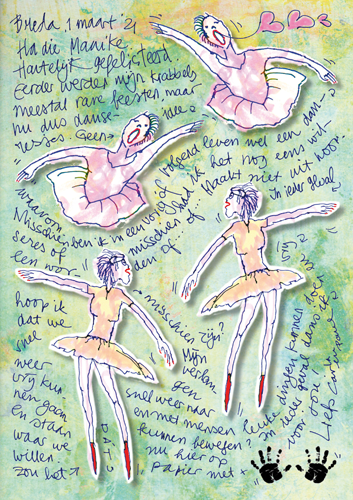 Breda, 1 maart '21
Ha die
Hartelijk gefeliciteerd.
Eerder werden mijn krabbels
meestal rare beesten, maar
nu dus danse-
resjes. Geen idee
waarom.
Misschien ben ik in een vorig of volgend leven wel een dan-
seres of
misschien had ik het nog eens wil-
of een wor-
den of... Maakt niet uit hoor.
In ieder geval
hoop ik
dat we
snel
weer
vrij kun-
nen gaan
en staan
waar we
willen.
Zou het
misschien zijn?
Mijn
verlan
gen
snel weer naar
en met mensen leuke dingen kunnen doen
kunnen bewegen? In ieder geval dans ze
nu hier op voor jou!
papier met
Liefs